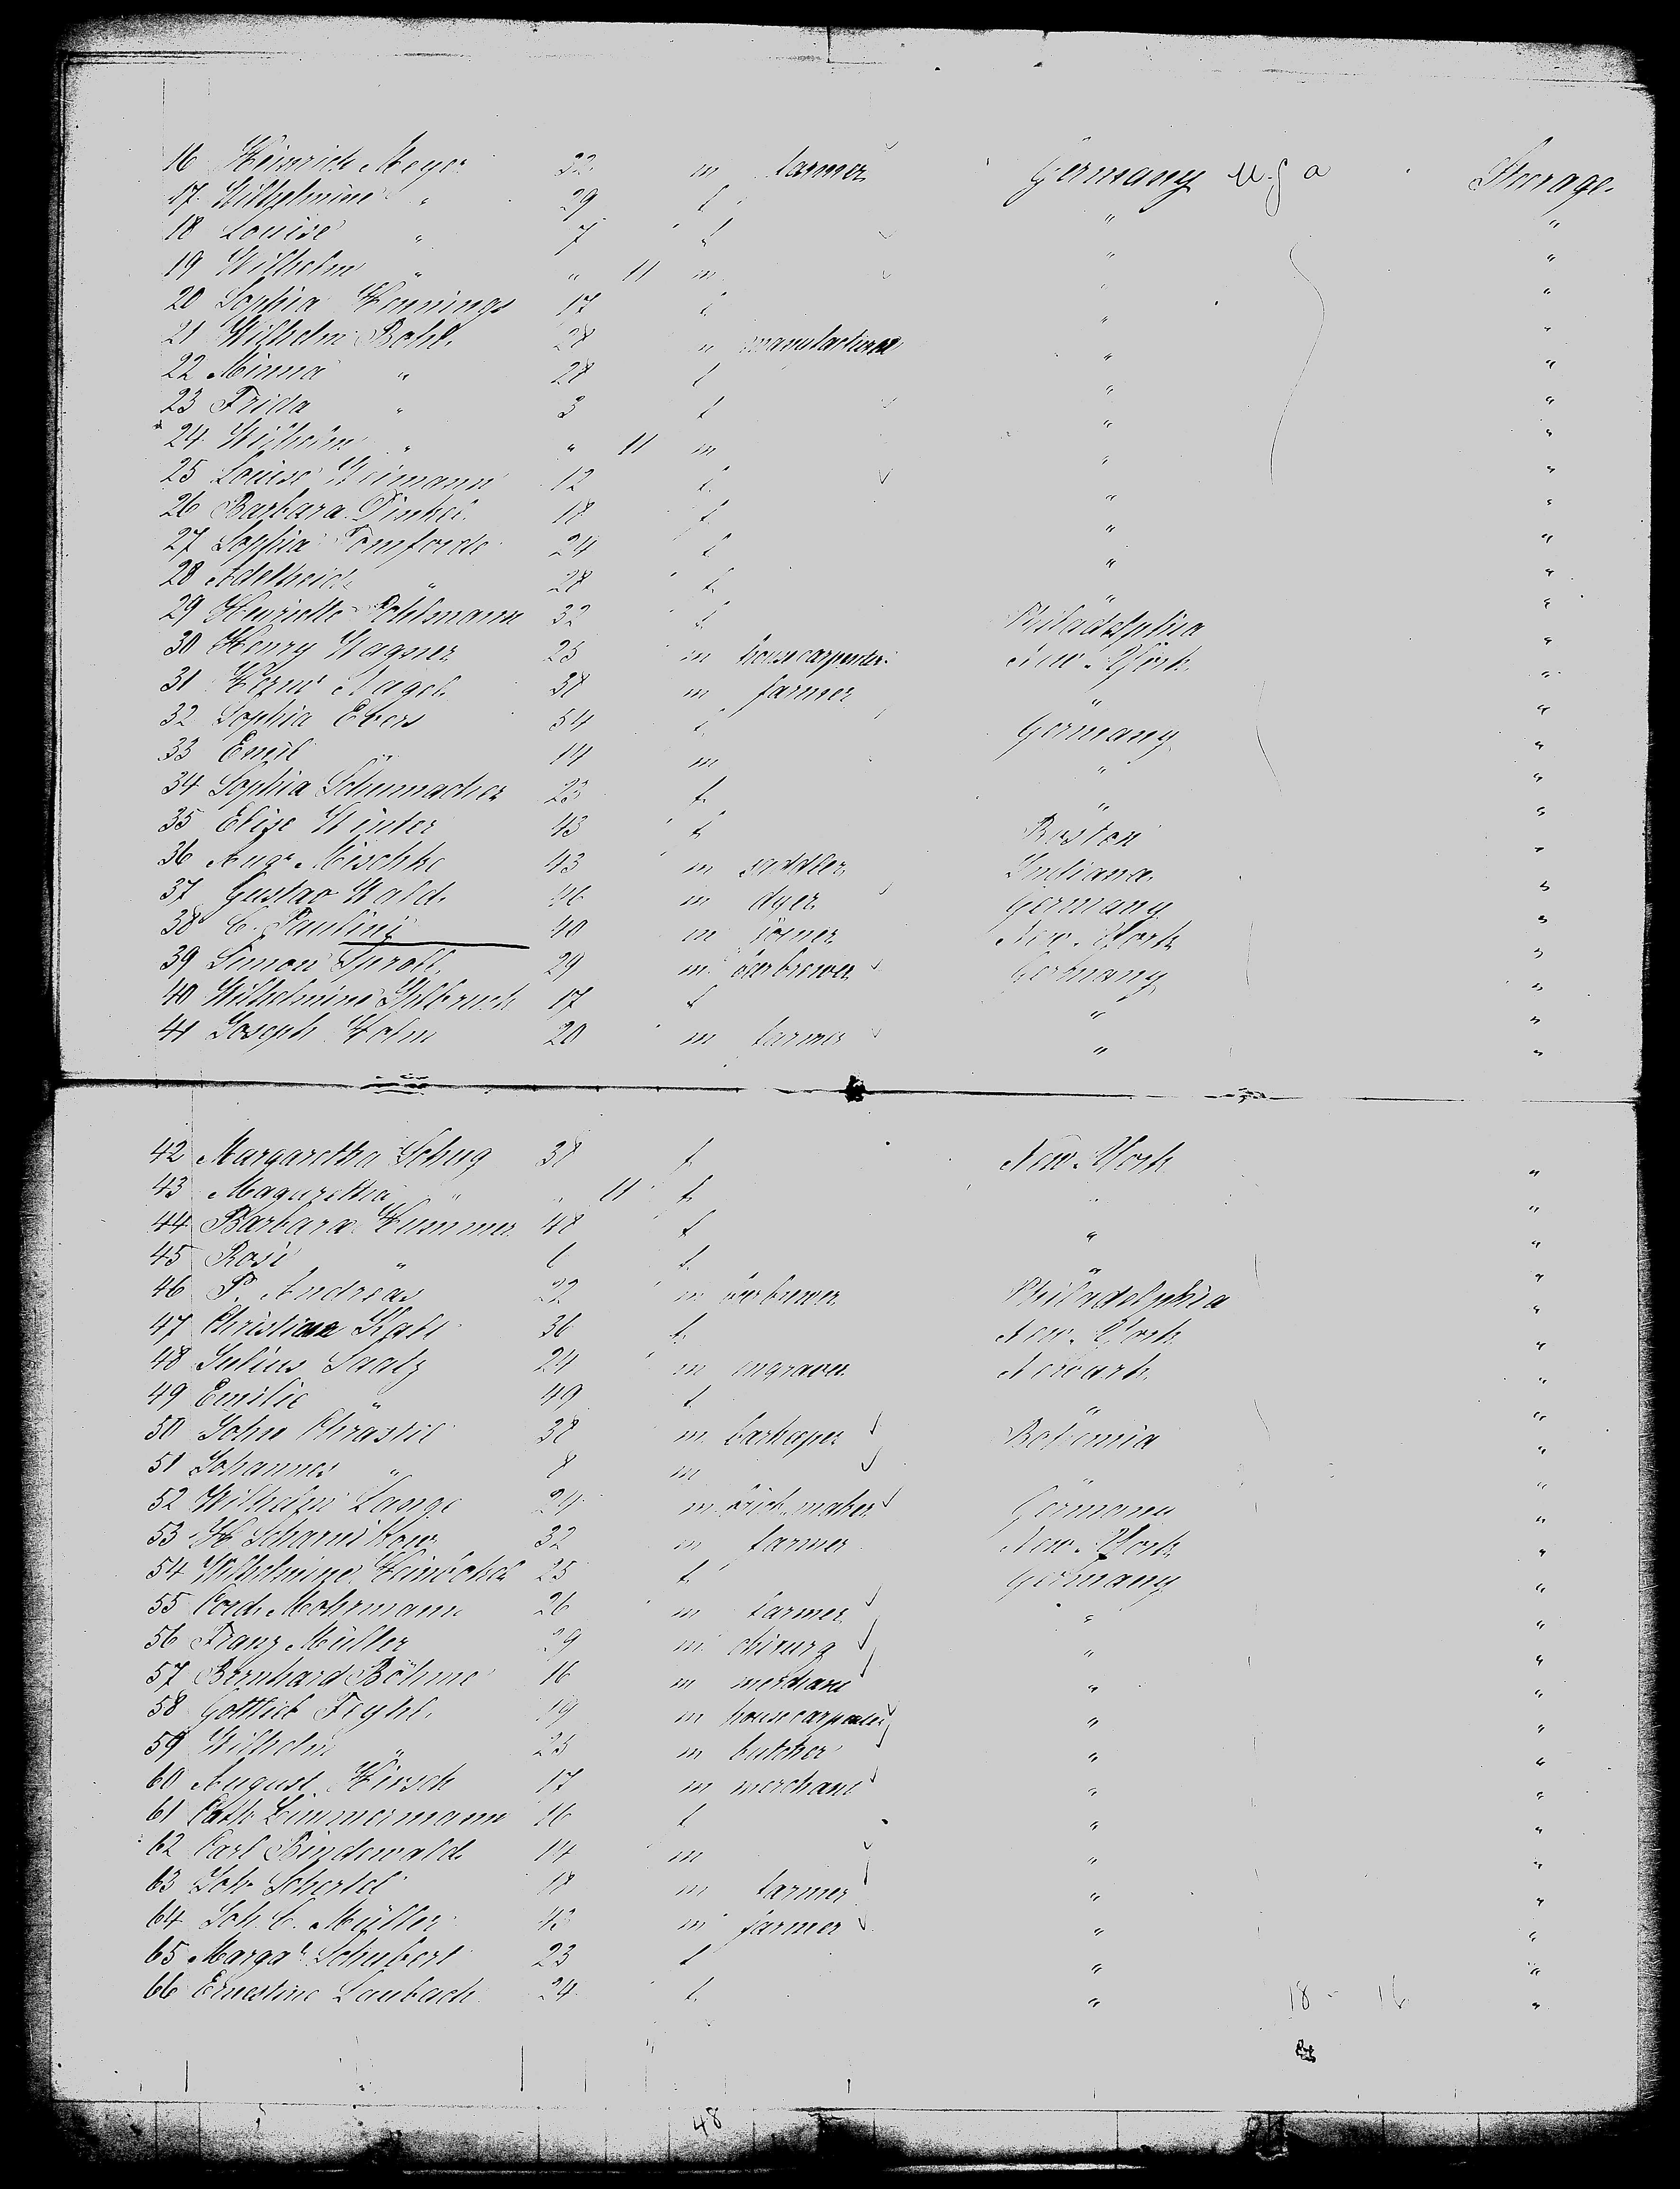 16 Heinrich Meyer 32 m farmer Germany U.S.a Steerage.
17. Wilhelmine " 29 f " "
18 Louise " 7 f " "
19 Wilhelm " " 11 m " "
20 Sophia Hennings 17 f " "
21 Wilhelm Bohl 28 m manufacturer " "
22 Minna " 28 f " "
23 Frida " 3 f " "
24 Wilhelm " " 11 m " "
25 Louise Weimann 12 f " "
26 Barbara Dinkel 18 f " "
27 Sophia Tomforde 24 f " "
28 Adelheid " 28 f " "
29 Henriette Pohlmann 32 f Philadelphia "
30 Henry Wagner 25 m housecarpenter New-York "
31 Nagel 38 m farmer " "
32 Sophia Ebers 54 f Germany "
33 Emil " 14 m " "
34 Sophia Schumacher 23 f " "
35 Elise Winter 43 f Boston "
36 Augs. Mischke 43 m saddler Indiana "
37 Gustav Wald 46 m dyer Germany "
38 C. Paulini 40 m joiner New-York "
39 Simon Sproll 29 m beerbrewer Germany "
40 Wilhelmine 17 f " "
41 Joseph Hohn 20 m farmer " "
42 Margaretha Schug 38 f New-York "
43 Magaretha " " 11 f " "
44 Barbara Hummer 48 f " "
45 Rosi " 6 f " "
46 F. Andreas 22 m beerbrewer Philadelphia "
47 Christiane 36 f New-York "
48 Julius Saatz 24 m engraver Newark "
49 Emilie " 49 f " "
50 John Chrastil 38 m barkeeper Bohemia "
51 Johannes " 8 m " "
52 Wilhelm Lange 24 m brickmaker Germany "
53 H. 32 m farmer New-York "
54 Wilhelmine 25 f Germany "
55 Cord Mohrmann 26 m farmer " "
56 Franz Müller 29 m chirurg " "
57 Bernhard Böhme 16 m merchant " "
58 Gottlieb Feghl 19 m housecarpenter " "
59 Wilhelm " 25 m butcher " "
60 August Hirsch 17 m merchant " "
61 Cath. Zimmermann 16 f " "
62 Carl Bindewald 14 m " "
63 Joh. Schertel 18 m farmer " "
64 Joh. C. Müller 43 m farmer " "
65 Margah. Schubert 23 f " "
66 Ernestine Laubach 24 f " 18 - 16 "
48